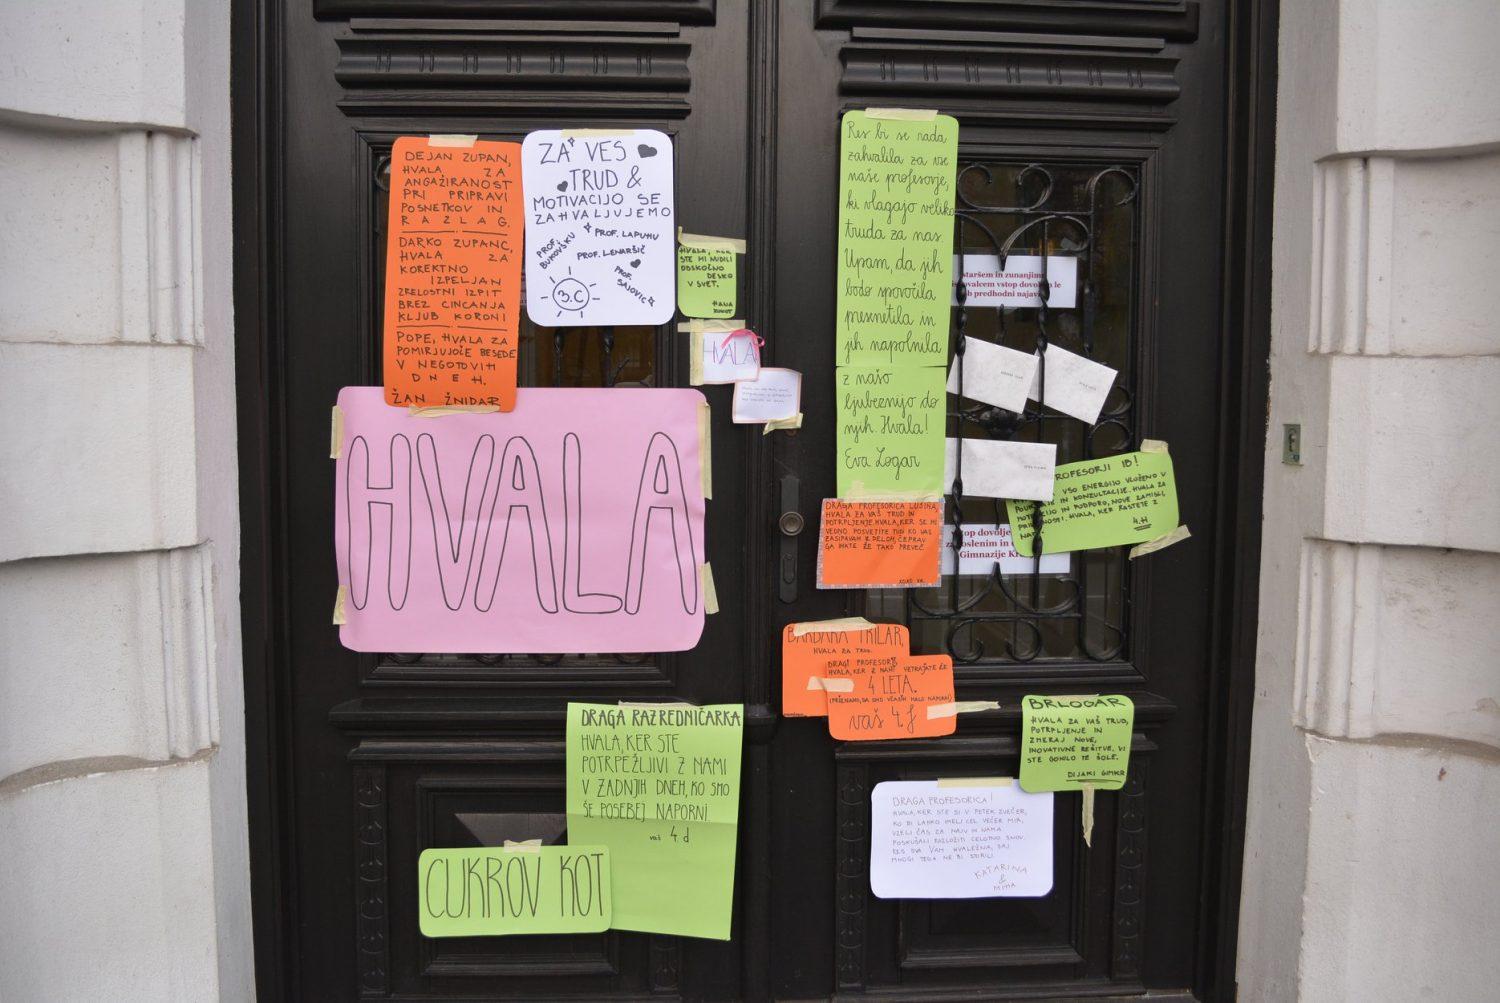 DEJAN ZUPAN,
HVALA ZA
ANGAŽIRANOST
PRI PRIPRAVI
POSNETKOV IN
RAZLAG.
DARKO ZUPANC,
HVALA ZA
KOREKTNO
IZPELJAN
ZRELOSTNI IZPIT
BREZ CINCANJA
KLJUB KORONI
POPE, HVALA ZA
POMIRJUJOČE BESEDE
V NEGOTOVIH
DNEH.
ŽAN ŽNIDAR
ZA VES
TRUD &
MOTIVACIJO SE
ZAHVALJUJEMO
PROF. BUKOVŠKU
PROF. LAPUHU
PROF. LENARŠIČ
PROF. SAJOVIC
3.C
HVALA, KER
STE MI NUDILI
ODSKOČNO
DESKO
V SVET.
HVALA
HVALA
Res bi se rada
zahvalila za vse
naše profesorje,
ki vlagajo veliko
truda za nas.
Upam, da jih
bodo sporočila
presnetila in
jih napolnila
z našo
ljubeznijo do
njih. Hvala!
Eva Logar
staršem in zunanjim
vstop dovoljen le
ob predhodni najavi
PROFESORJI IB!
VSO ENERGIJO VLOŽENO V
IN KONZULTACIJE. HVALA ZA
IN PODPORO, NOVE ZAMISLI,
HVALA, KER RASTETE Z
NAMI.
4.H
DRAGA PROFESORICA LUŠINA,
HVALA ZA VAŠ TRUD IN
POTRPLJENJE. HVALA, KER SE MI
VEDNO POSVETITE TUDI KO VAS
ZASIPAVAM Z DELOM, ČEPRAV
GA IMATE ŽE TAKO PREVEČ.
Gimnazije
BARBARA TRILAR,
HVALA ZA TRUD.
DRAGI PROFESORJI
HVALA, KER Z NAMI VZTRAJATE ŽE
4 LETA.
(PRIZNAMO, DA SMO VČASIH MALO NAPORNI)
vaš 4.f
DRAGA RAZREDNIČARKA
HVALA, KER STE
POTRPEŽLJIVI Z NAMI
V ZADNJIH DNEH, KO SMO
ŠE POSEBEJ NAPORNI.
vaš 4. d
CUKROV KOT
BRLOGAR
HVALA ZA VAŠ TRUD,
POTRPLJENJE IN
ZMERAJ NOVE,
INOVATIVNE REŠITVE. VI
STE GONILO TE ŠOLE.
DIJAKI GIMKR
DRAGA PROFESORICA!
HVALA, KER STE SI V PETEK ZVEČER,
KO BI LAHKO IMELI CEL VEČER MIR,
VZELI ČAS ZA NAJU IN NAMA
POSKUŠALI RAZLOŽITI CELOTNO SNOV.
RES SVA VAM HVALEŽNA, SAJ
MNOGI TEGA NE BI STORILI.
KATARINA
&
MIHA